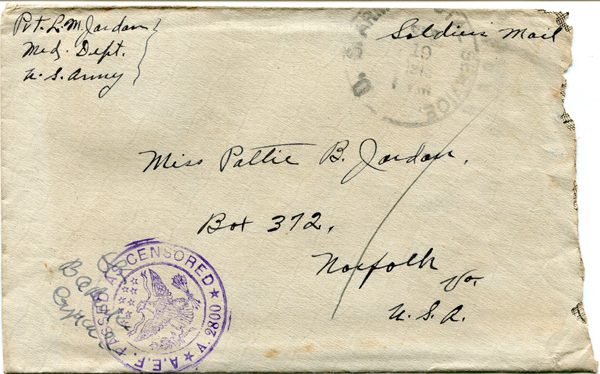 Pvt. L. M. Jordan
Med. Dept.
U. S. Army
Soldiers Mail
U. S. ARMY
SERVICE
19
Miss Pattie B. Jordan,
Box 372,
Norfolk Va.
U. S. A.
PASSED AS CENSORED
A.E.F. A. 2800